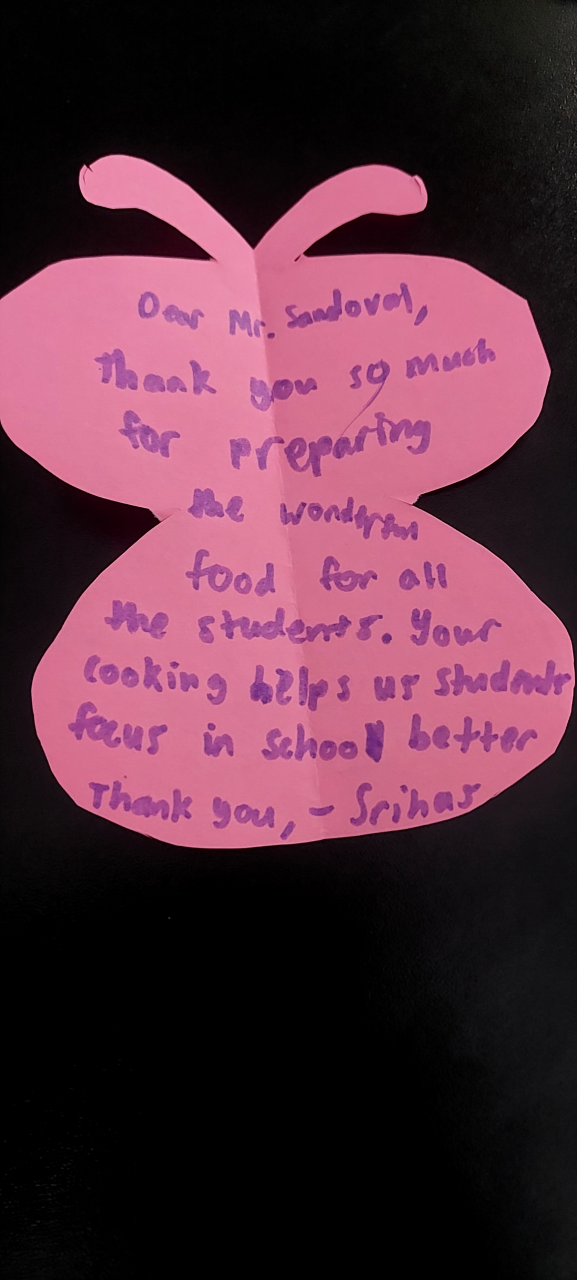 Dear Mr. Sandoval,
Thank you so much
for preparing
the wonderful
food for all
the students. Your
cooking helps us students
focus in school better
Thank you, - Srihas